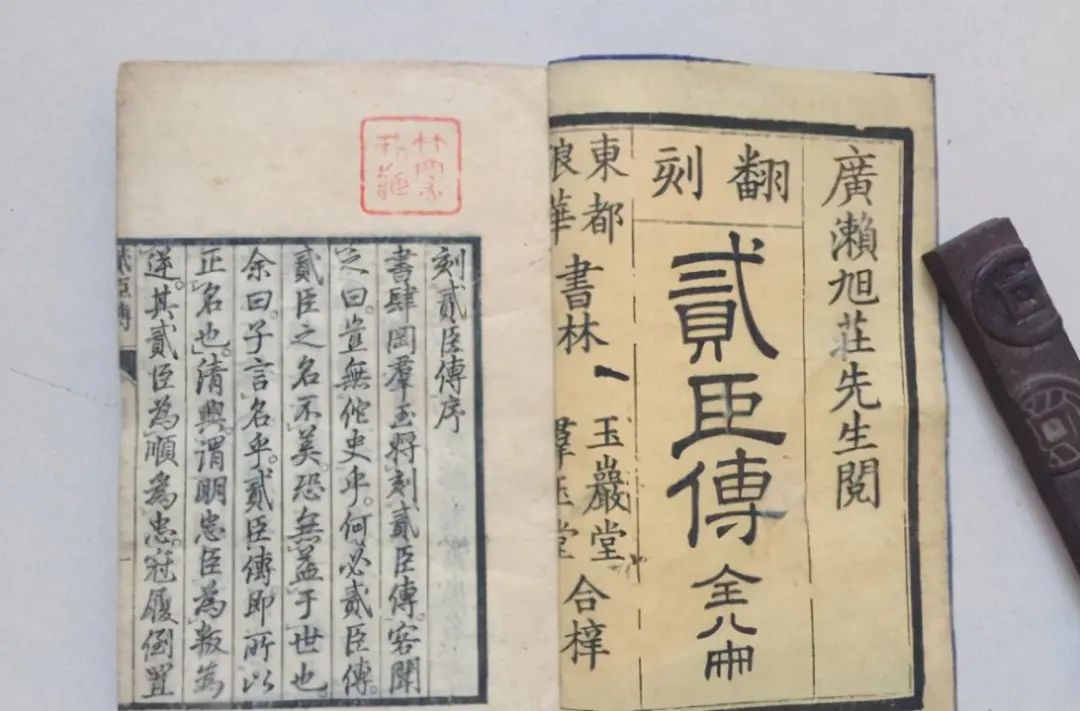 廣瀨旭莊先生閱
翻刻
貳臣傳 全八冊
東都 書林 玉巖堂 合梓
浪華 羣玉堂
刻貳臣傳序
書肆岡羣玉將刻貳臣傳客聞
之曰豈無佗史乎何必貳臣傳
貳臣之名不美恐無益于世也
余曰子言名乎貳臣傳即所以
正名也清興謂明忠臣為叛為
逆其貳臣為順為忠冠履倒置
貳臣傳